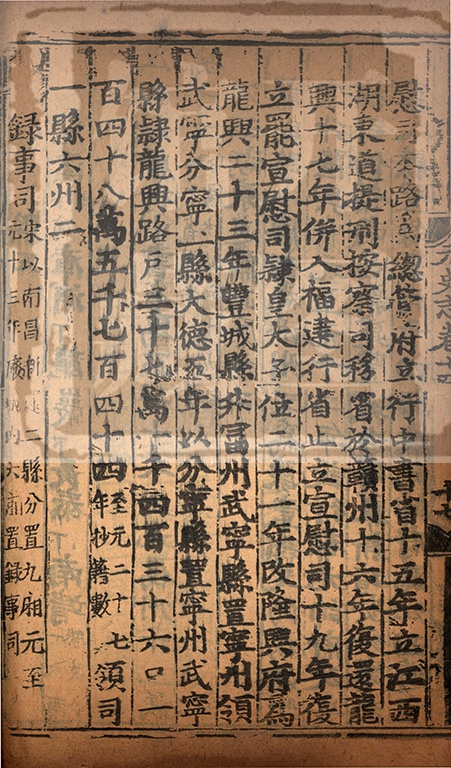 慰司本路爲總管府立行中書省十五年立江西
湖東道提刑按察司移省於贛州十六年復還龍
興十七年併入福建行省止立宣慰司十九年復
立罷宣慰司隸皇大子位二十一年改隆興府爲
龍興二十三年豐城縣升富州武寧縣置寧州領
武寧分寧二縣大德五年以分寧縣置寧州武寧
縣隸龍興路戶三十七萬一千四百三十六口一
百四十八萬五千七百四十四至元二十七年抄籍數領司
一縣六州二
錄事司宋以南昌新建二縣分置九廂元至
元十三年廢城內六廂置錄事司